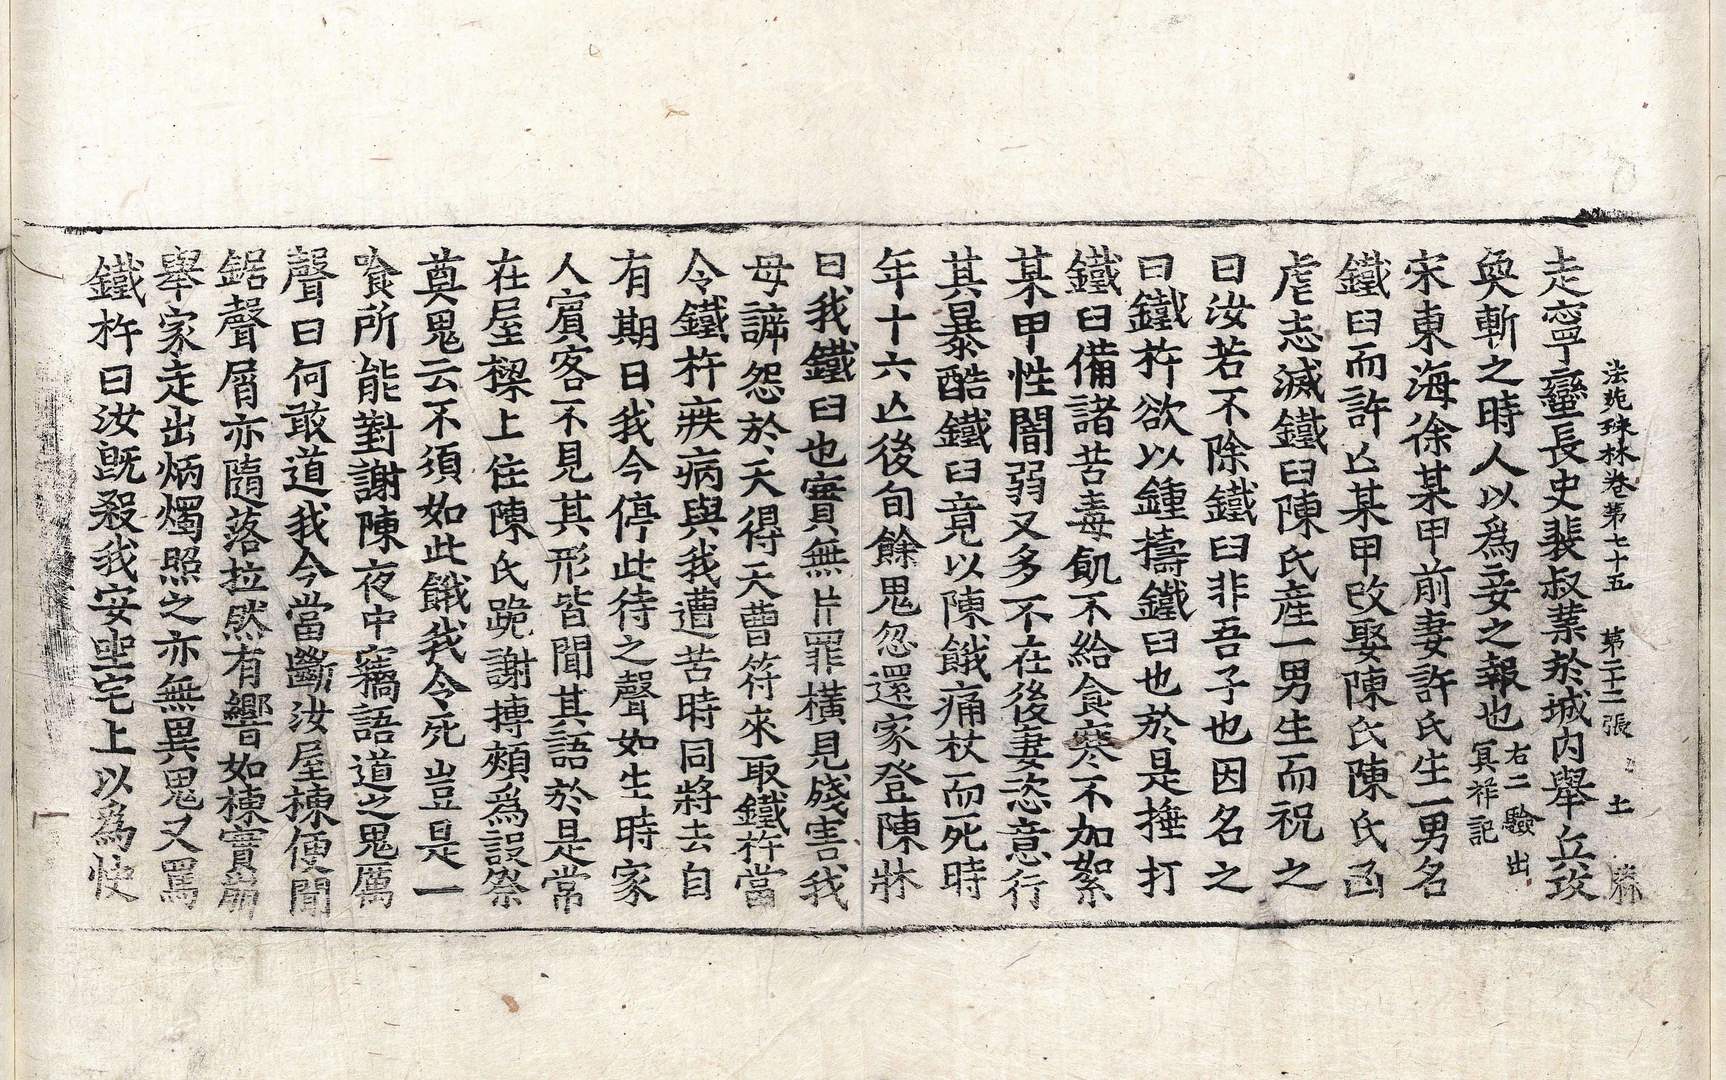 法苑珠林卷第七十五 第二十二張 士
走寧蠻長史裴叔業於城內舉兵攻
奐斬之時人以爲妾之報也右二驗出冥祥記
宋東海徐某甲前妻許氏生一男名
鐵臼而許亡某甲改娶陳氏陳氏凶
虐志滅鐵臼陳氏產一男生而祝之
曰汝若不除鐵臼非吾子也因名之
曰鐵杵欲以鍾擣鐵臼也於是捶打
鐵臼備諸苦毒飢不給食寒不加絮
某甲性闇弱又多不在後妻恣意行
其暴酷鐵臼竟以陳餓痛杖而死時
年十六亡後旬餘鬼忽還家登陳牀
曰我鐵臼也實無片罪橫見殘害我
母訴怨於天得天曹符來取鐵杵當
令鐵杵疾病與我遭苦時同將去自
有期日我今停此待之聲如生時家
人賓客不見其形皆聞其語於是常
在屋樑上住陳氏跪謝搏頰爲設祭
奠鬼云不須如此餓我令死豈是一
飡所能對謝陳夜中竊語道之鬼厲
聲曰何敢道我今當斷汝屋棟便聞
鋸聲屑亦隨落拉然有響如棟實崩
舉家走出炳燭照之亦無異鬼又罵
鐵杵曰汝旣殺我安坐宅上以爲快